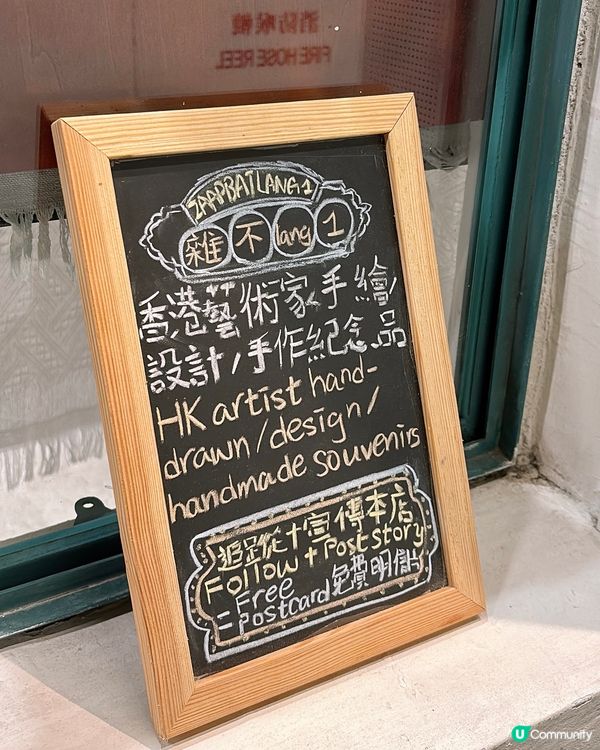 消防喉轆
FIRE HOSE REEL
ZAAPBATLANG1
雜不lang1
香港藝術家手繪
設計/手作紀念品
HK artist hand-
drawn/design/
handmade souvenirs
追蹤+宣傳本店
Follow + Post story
= Free Postcard 免費明信片
U Community